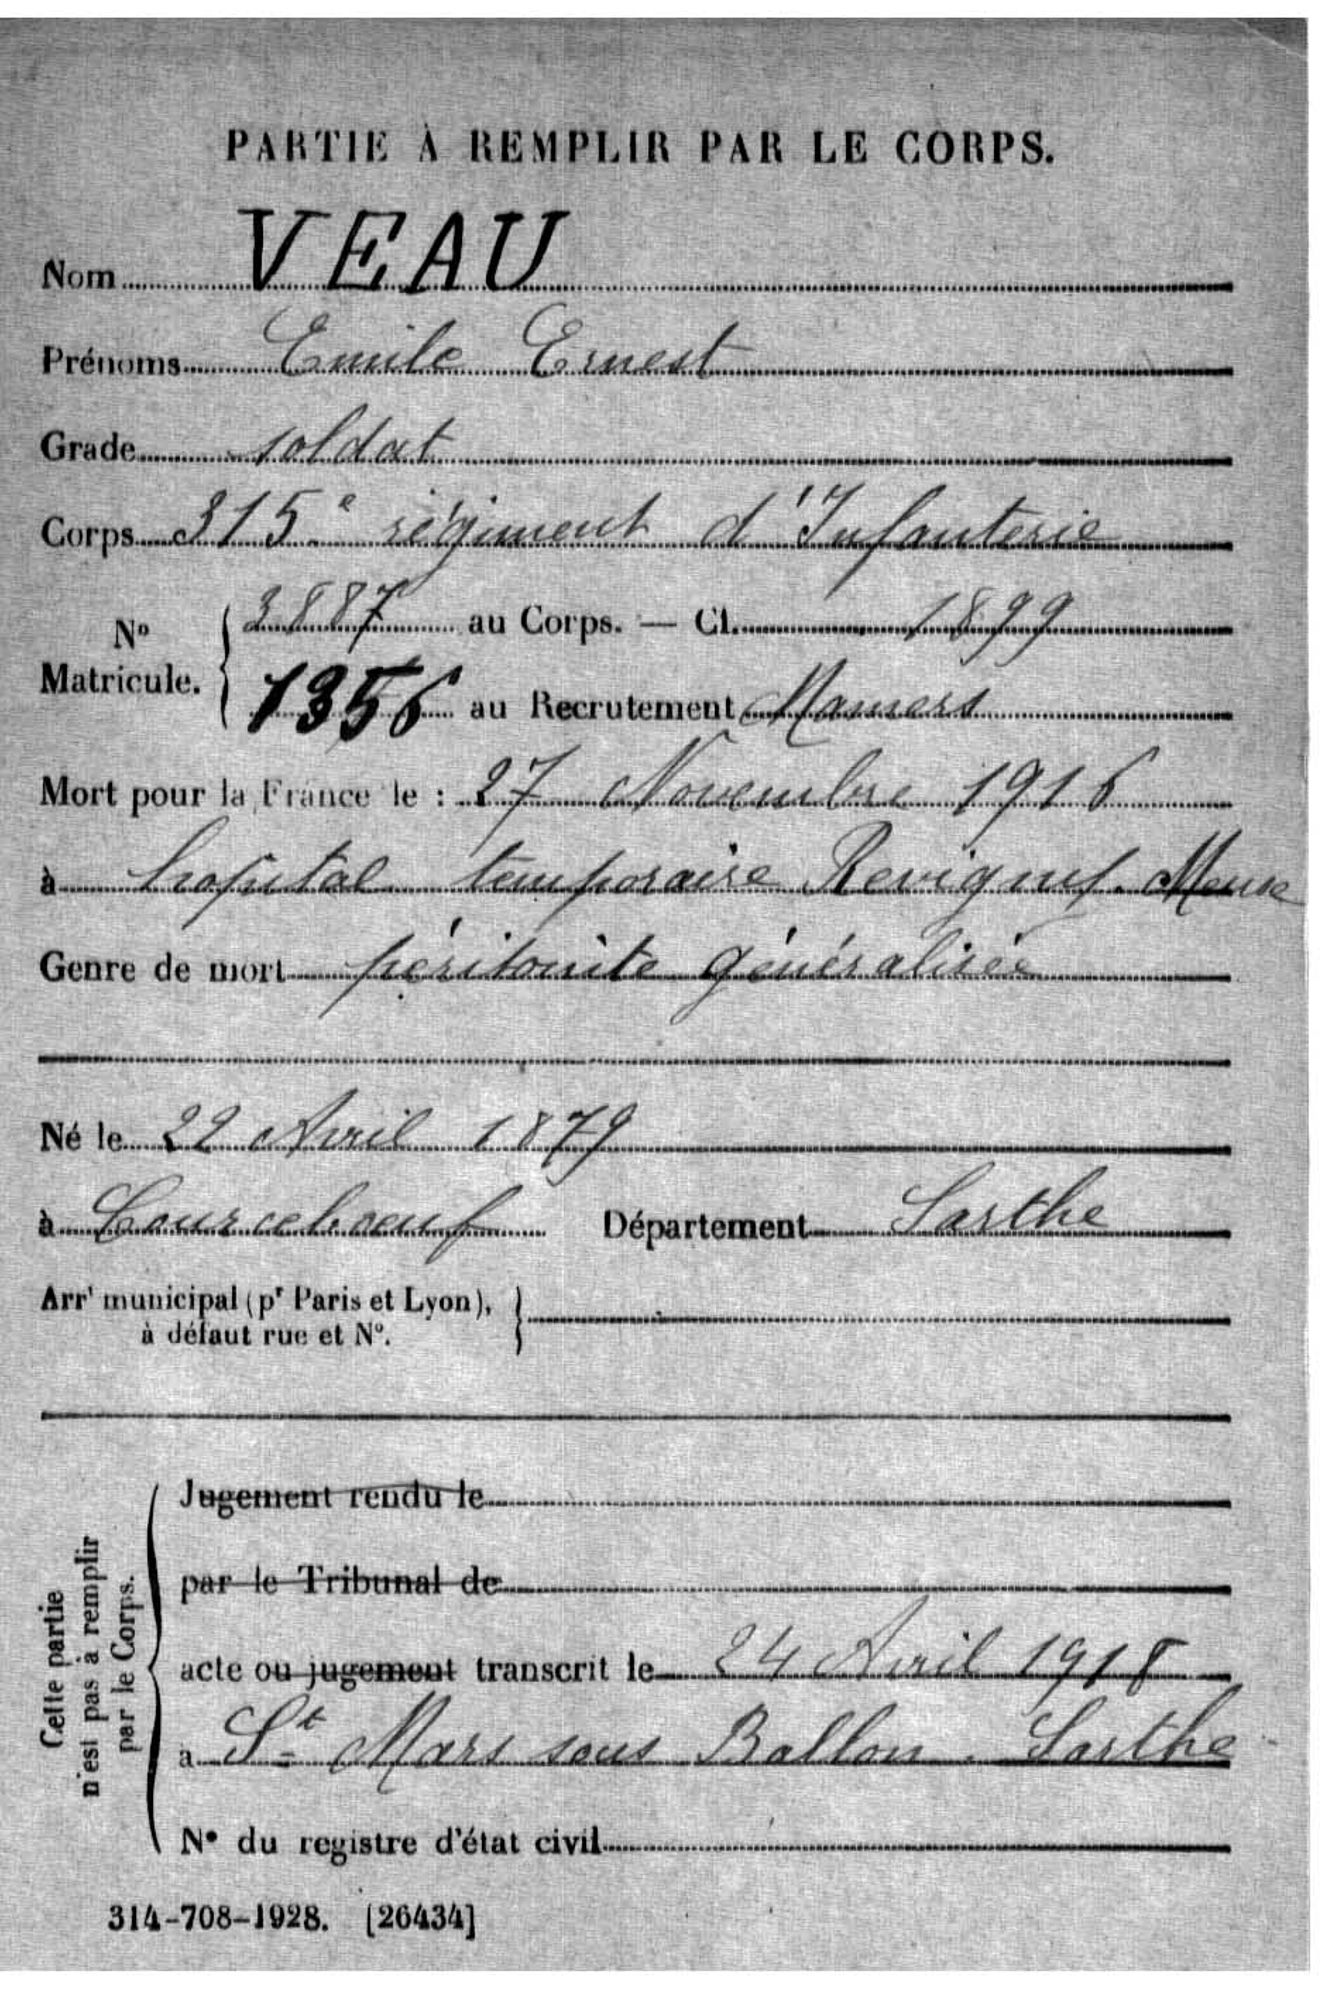 PARTIE À REMPLIR PAR LE CORPS.
Nom VEAU
Prénoms Emile Ernest
Grade soldat
Corps 315e régiment d'Infanterie
No Matricule. 3887 au Corps. — Cl. 1899
1356 au Recrutement Mamers
Mort pour la France le : 27 Novembre 1916
à hopital temporaire Revigny. Meuse
Genre de mort péritonite généralisée
Né le 22 Avril 1879
à Courceboeuf Département Sarthe
Arrt municipal (pr Paris et Lyon),
à défaut rue et No.
Cette partie
n'est pas à remplir
par le Corps.
Jugement rendu le
par le Tribunal de
acte ou jugement transcrit le 24 Avril 1918
à St Mars sous Ballon. Sarthe
No du registre d'état civil
314-708-1928. [26434]